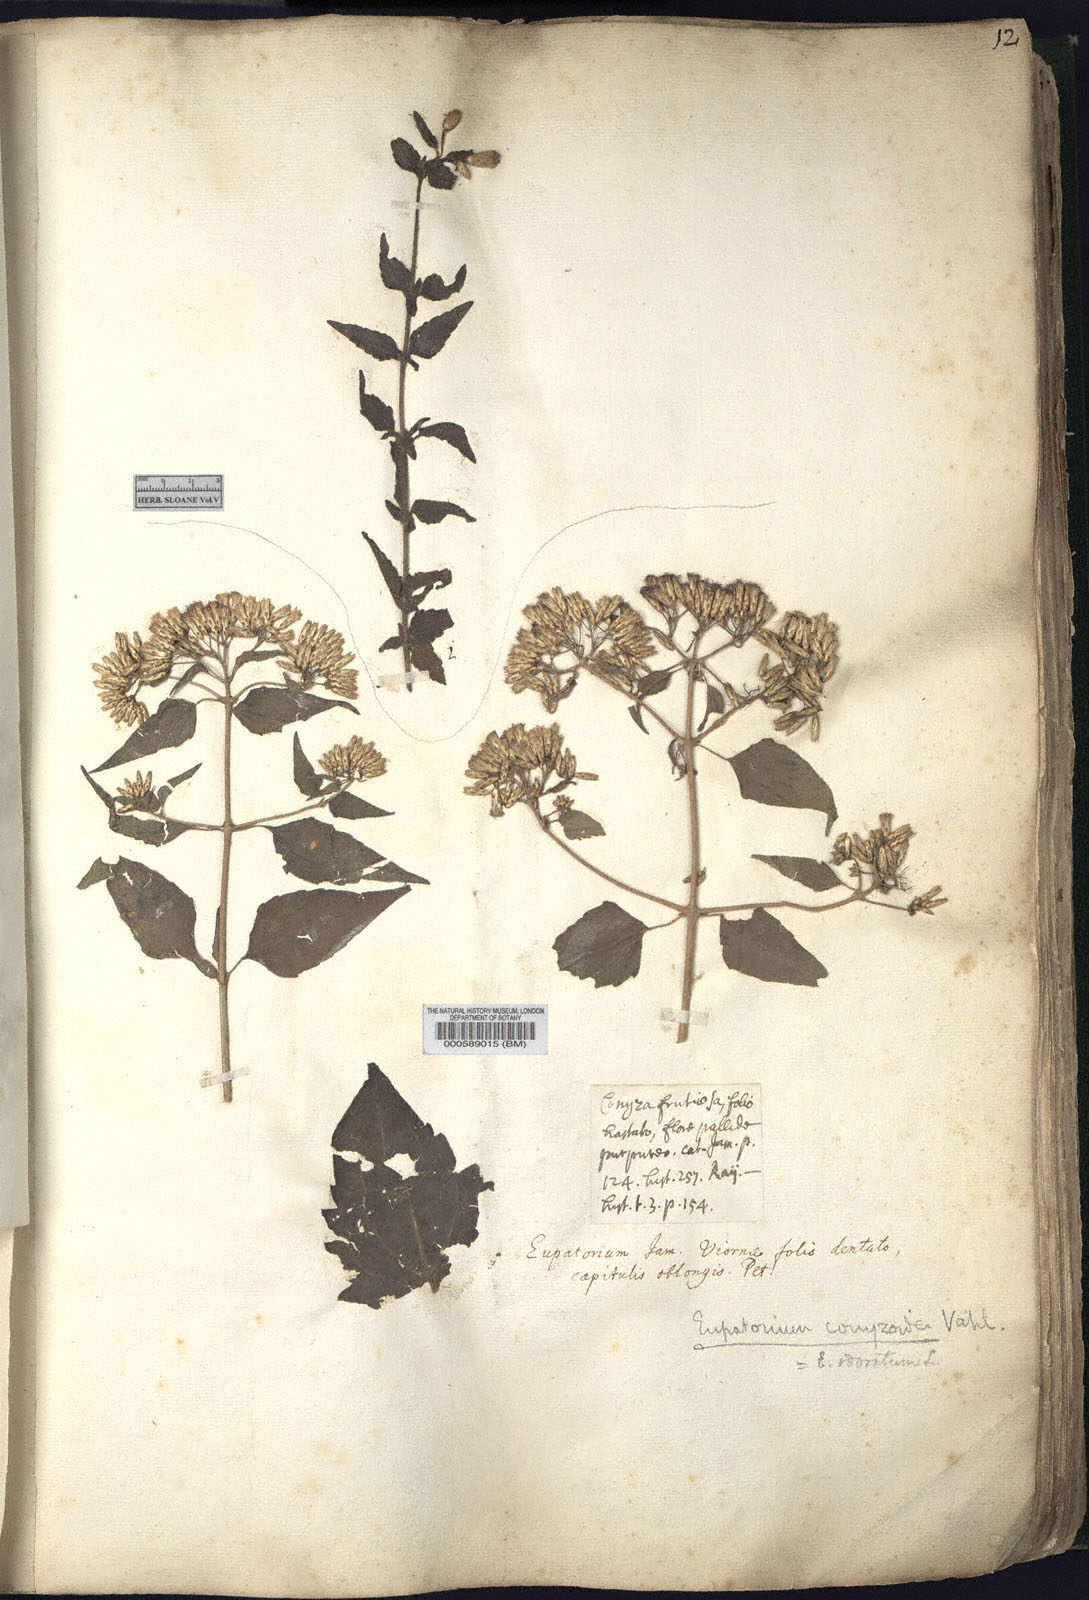 12
HERB. SLOANE Vol.V
2
THE NATURAL HISTORY MUSEUM, LONDON
DEPARTMENT OF BOTANY
000589015 (BM)
Conyza fruticosa, folio
hastato, flore pallide
purpureo. cat. Jam. p.
124. hist. 257. Raij.—
hist. t. 3. p. 154.
Eupatorium Jam. Viornæ folio dentato,
capitulis oblongis. Pet.
Eupatorium conyzoides Vahl.
= E. odoratum L.